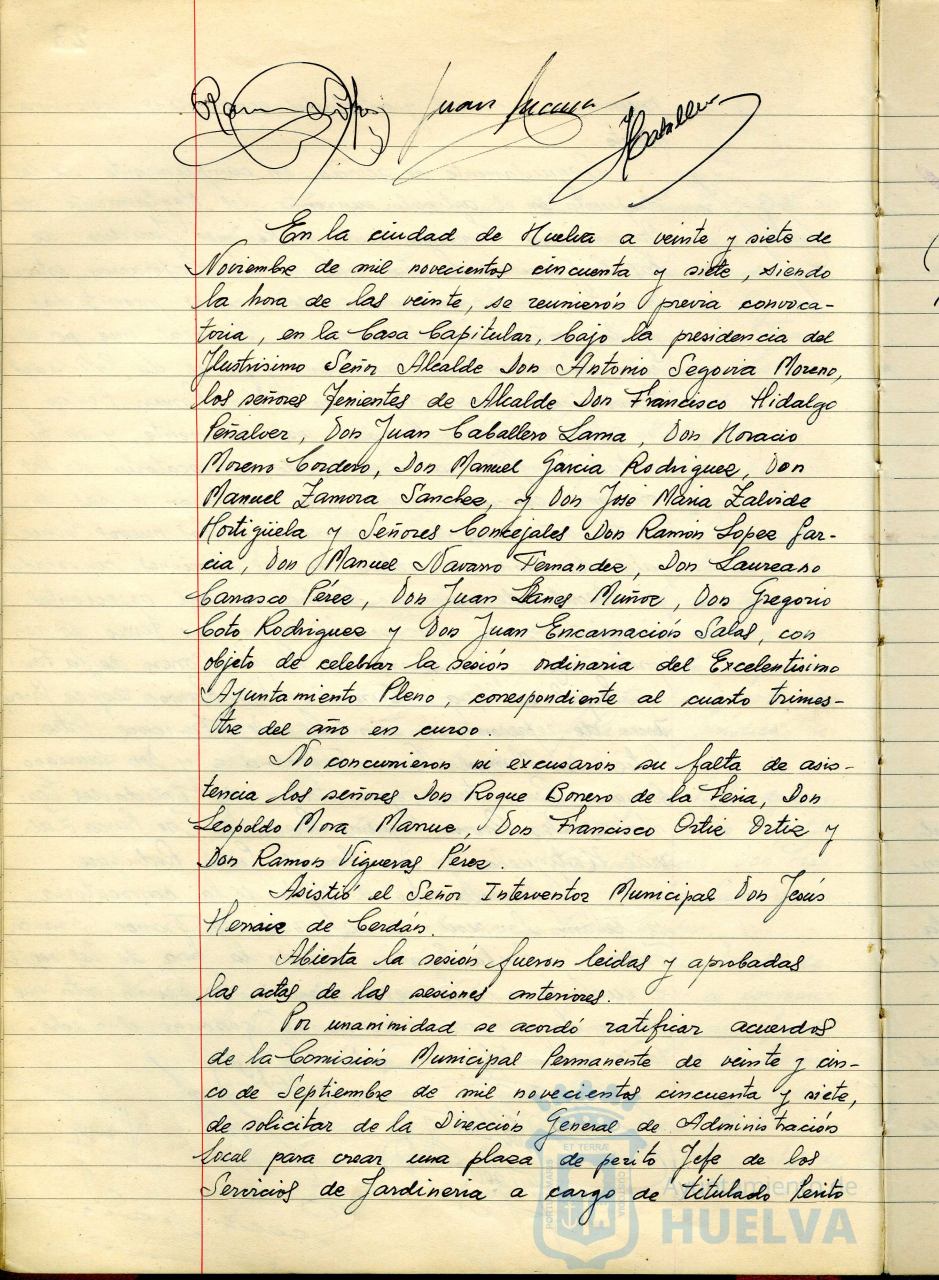 Ramón López Juan Llanes JCaballero
En la ciudad de Huelva a veinte y siete de
Noviembre de mil novecientos cincuenta y siete, siendo
la hora de las veinte, se reunierón previa convoca-
toria, en la Casa Capitular, bajo la presidencia del
Ilustrisimo Señor Alcalde Don Antonio Segovia Moreno,
los señores Tenientes de Alcalde Don Francisco Hidalgo
Peñalver, Don Juan Caballero Lama, Don Horacio
Moreno Cordero, Don Manuel Garcia Rodriguez, Don
Manuel Zamora Sanchez, y Don José Maria Zalvide
Hortigüela y Señores Concejales Don Ramón Lopez Gar-
cia, Don Manuel Navarro Fernandez, Don Laureano
Carrasco Pérez, Don Juan Llanes Muñoz, Don Gregorio
Coto Rodriguez y Don Juan Encarnación Salas, con
objeto de celebrar la sesión ordinaria del Excelentisimo
Ayuntamiento Pleno, correspondiente al cuarto trimes-
tre del año en curso.
No concurrieron ni excusarón su falta de asis-
tencia los señores Don Roque Borrero de la Feria, Don
Leopoldo Mora Manuc, Don Francisco Ortiz Ortiz y
Don Ramon Vigueras Pérez.
Asistió el Señor Interventor Municipal Don Jesús
Herraiz de Cerdán.
Abierta la sesión fueron leidas y aprobadas
las actas de las sesiones anteriores.
Por unanimidad se acordó ratificar acuerdos
de la Comisión Municipal Permanente de veinte y cin-
co de Septiembre de mil novecientos cincuenta y siete,
de solicitar de la Dirección General de Administración
Local para crear una plaza de perito Jefe de los
Servicios de Jardineria a cargo de titulado Perito
Ayuntamiento de
HUELVA
PORTUS MARIS ET TERRÆ CUSTODIA